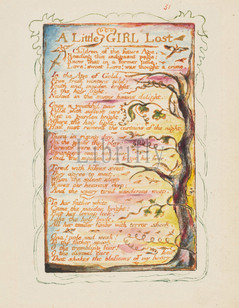 A Little GIRL Lost
Children of the future Age,
Reading this indignant page:
Know that in a former time,
Love! sweet Love! was thought a crime.
In the Age of Gold,
Free from winters cold:
Youth and maiden bright,
To the holy light,
Naked in the sunny beams delight.
Once a youthful pair
Fill'd with softest care:
Met in garden bright,
Where the holy light,
Had just removd the curtains of the night.
There in rising day,
On the grass they play:
Library
Tired with kisses sweet
They agree to meet,
When the silent sleep
Waves o'er heavens deep:
And the weary tired wanderers weep.
To her father white
Came the maiden bright:
But his loving look,
Like the holy book,
All her tender limbs with terror shook.
Ona! pale and weak!
To thy father speak:
O the trembling fear!
O the dismal care!
That shakes the blossoms of my hoary hair